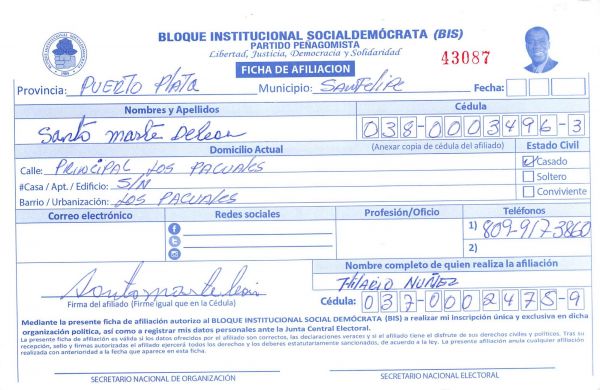 BLOQUE INSTITUCIONAL SOCIALDEMÓCRATA (BIS)
PARTIDO PEÑAGOMISTA
Libertad, Justicia, Democracia y Solidaridad
43087
FICHA DE AFILIACION
Provincia: Puerto Plata Municipio: San Felipe Fecha:
Nombres y Apellidos Cédula
Santo Marte De Leon 038-0003496-3
Domicilio Actual (Anexar copia de cédula del afiliado) Estado Civil
Calle: Principal Los Pacuales Casado
#Casa / Apt. / Edificio: S/N Soltero
Barrio / Urbanización: Los Pacuales Conviviente
Correo electrónico Redes sociales Profesión/Oficio Teléfonos
1) 809-917-3860
2)
Nombre completo de quien realiza la afiliación
Santo Marte Leon Hilario Nuñez
Firma del afiliado (Firme igual que en la Cédula) Cédula: 037-0002475-9
Mediante la presente ficha de afiliación autorizo al BLOQUE INSTITUCIONAL SOCIAL DEMÓCRATA (BIS) a realizar mi inscripción única y exclusiva en dicha
organización política, así como a registrar mis datos personales ante la Junta Central Electoral.
La presente ficha de afiliación es válida si los datos ofrecidos por el afiliado son correctos, las declaraciones veraces y si el afiliado tiene el disfrute de sus derechos civiles y políticos. Tras su
recepción, sello y firmas autorizadas el afiliado ejercerá todos los derechos y los deberes estatutariamente sancionados, de acuerdo a la ley. La presente afiliación anula cualquier afiliación
realizada con anterioridad a la fecha que aparece en esta ficha.
SECRETARIO NACIONAL DE ORGANIZACIÓN SECRETARIO NACIONAL ELECTORAL